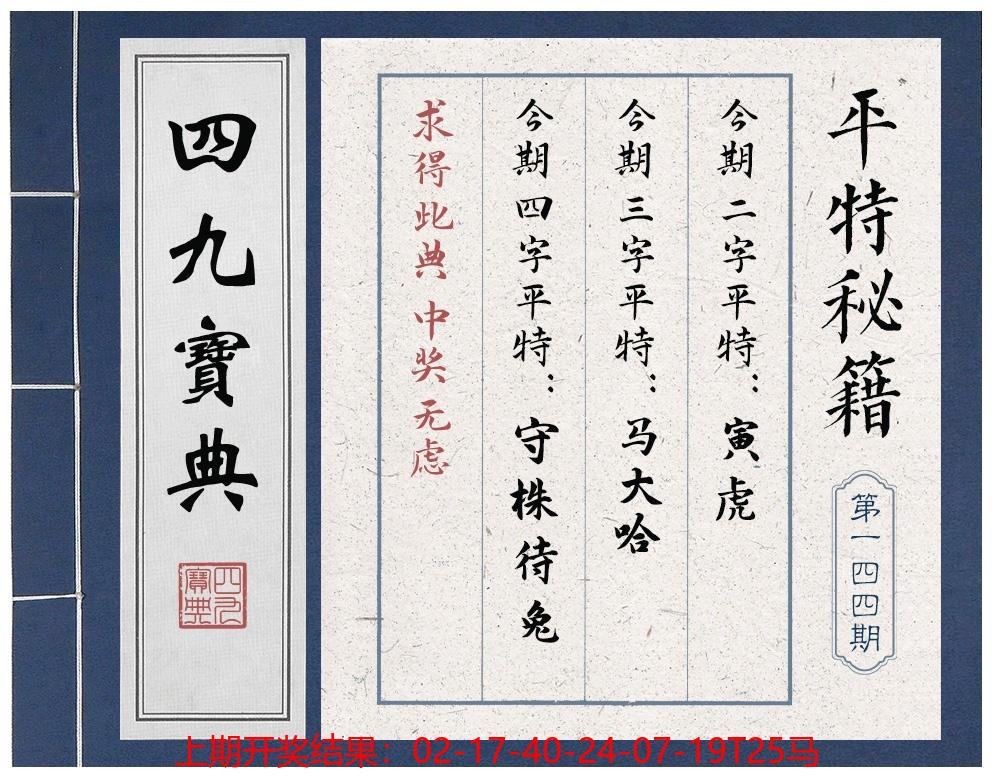 平特秘籍
第一四四期
今期二字平特：寅虎
今期三字平特：马大哈
今期四字平特：守株待兔
求得此典 中奖无虑
四九寶典
四九寶典
上期开奖结果：02-17-40-24-07-19T25马